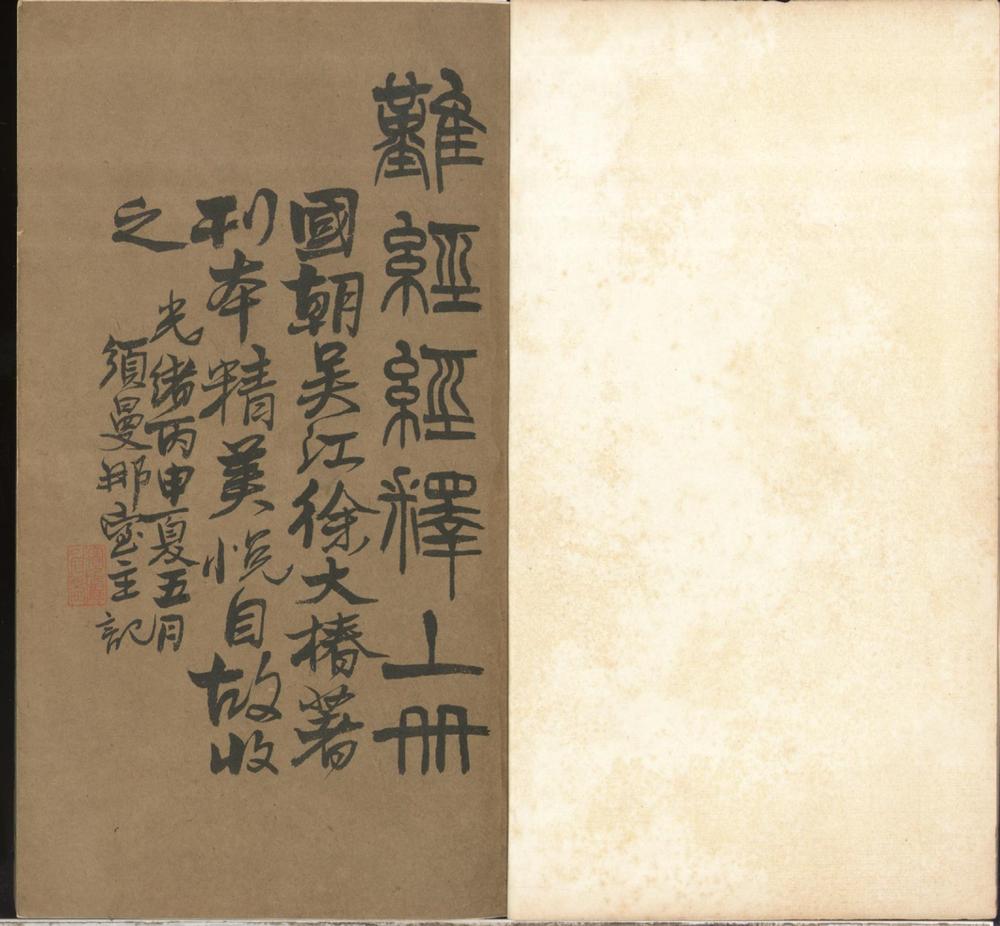 難經經釋上册
國朝吴江徐大椿著
刊本精美悅目故收
之
光緒丙申夏五月
須曼那室主記